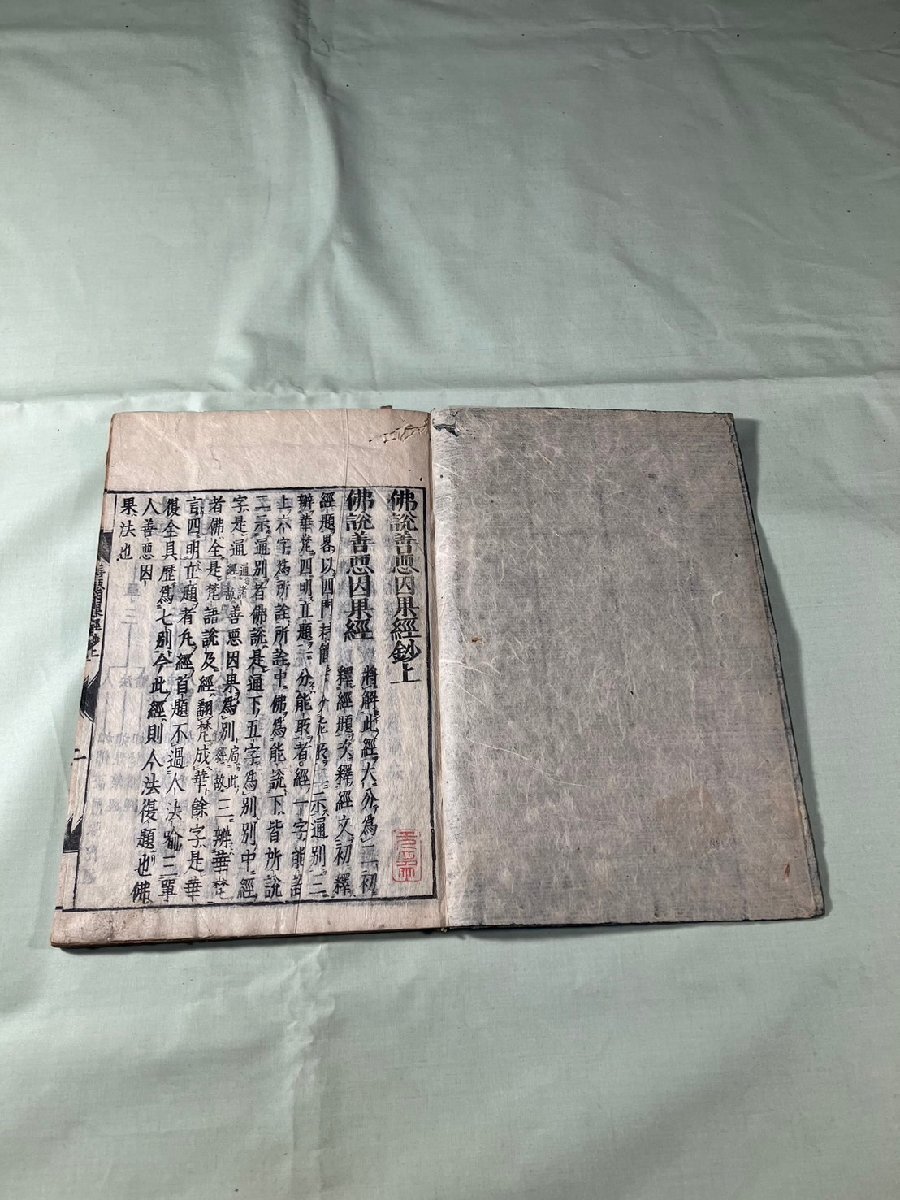 佛說善惡因果經鈔上
將解此經大分為二初
佛說善惡因果經
釋經題次釋經文初釋
經題畧以四門
分能所二示通別三
辨華梵四明立題初分能所者經一字能詮
上六字為所詮所詮中佛為能說下皆所說
二示通別者佛說是通下五字為別別中經
字是通通諸經故善惡因果為別局此經故三辨華梵
者佛全是梵語說及經翻梵成華餘字是華
言四明立題者凡經首題不過人法喻三單
復全具歷為七別今此經則人法復題也佛
人善惡因
果法也
善惡因果經鈔上